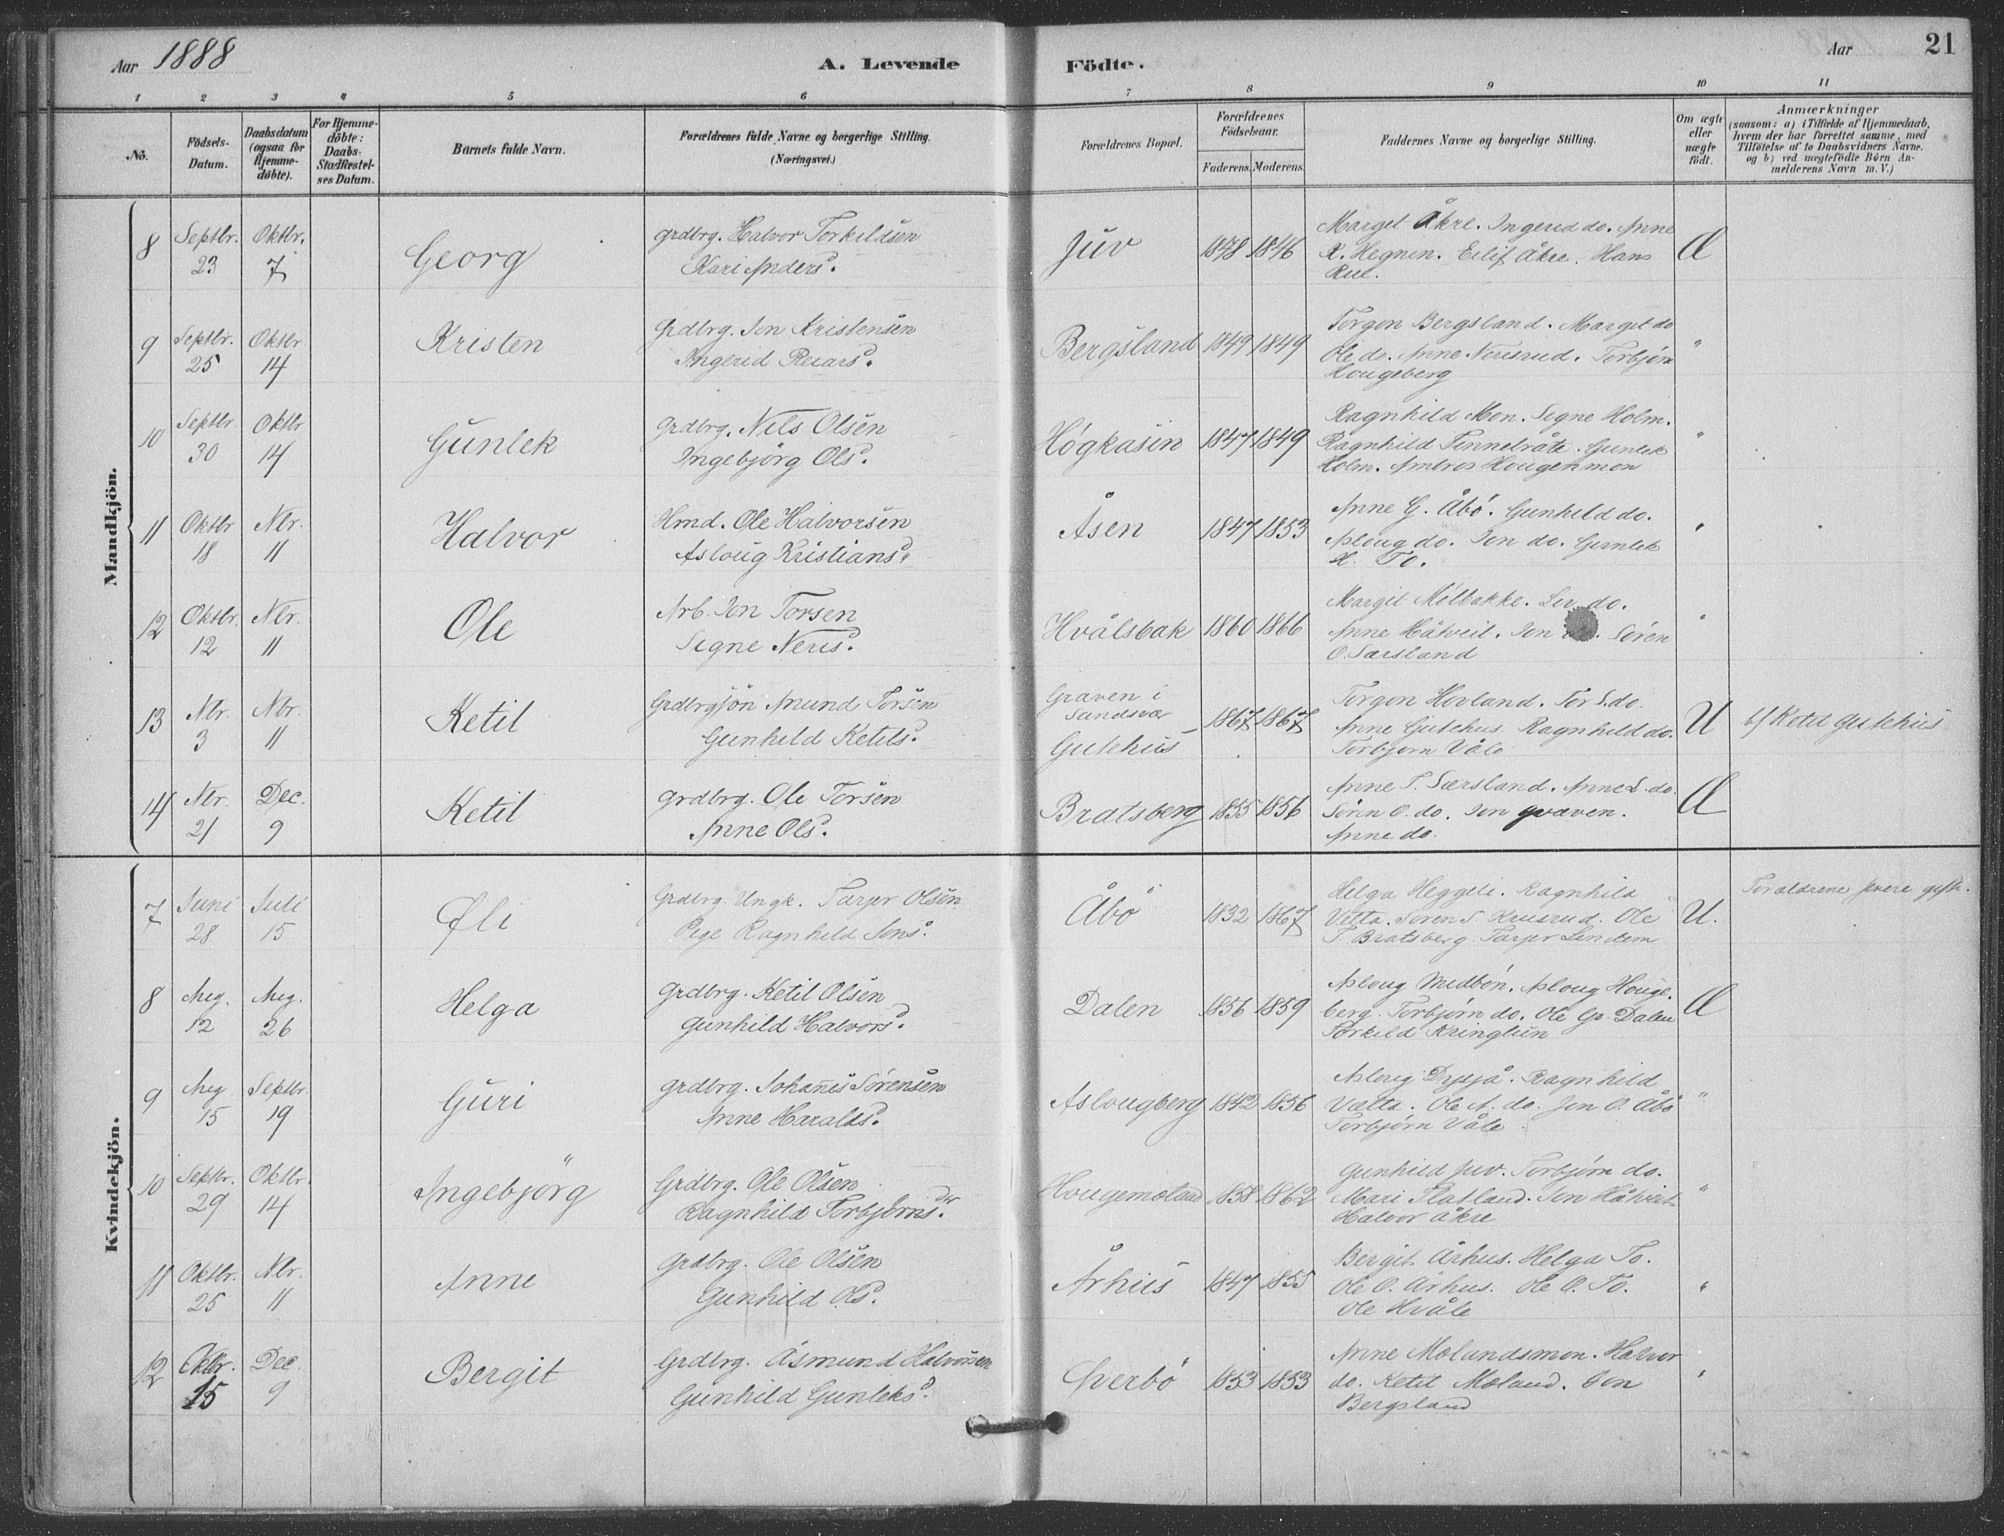 Aar 1888
A. Levende Födte.
Aar
21
1 2 3 4 5 6 7 8 9 10 11
No.
Födsels-Datum.
Daabsdatum (ogsaa for Hjemmedöbte).
For Hjemmedöbte: Daabs-Stadfæstelses Datum.
Barnets fulde Navn.
Forældrenes fulde Navne og borgerlige Stilling. (Næringsvei.)
Forældrenes Bopæl.
Forældrenes Födselsaar.
Faderens. Moderens.
Faddernes Navne og borgerlige Stilling.
Om ægte eller uægte födt.
Anmærkninger
(saasom: a) i Tilfælde af Hjemmedaab, hvem der har forrettet samme, med Tilföielse af to Daabsvidners Navne, og b) ved uægtefödte Börn Anmelderens Navn m. V.)
Mandkjön.
8 Septbr. 23 Oktbr. 7 Georg grdbrg. Halvor Torkildsen
Kari Anders. Juv 1878 1846 Marget Åkre. Ingerid do. Anne
K. Hegnin. Eilif Åkre. Hans
Rue. Æ
9 Septbr. 25 Oktbr 14 Kristen Grdbrg. Jon Kristensen
Ingerid Reiars. Bergsland 1849 1849 Torgon Bergsland. Margit do
Ole do. Anne Nerisrud. Torbjørn
Hougeberg "
10 Septbr. 30 Oktbr 14 Gunlek Grdbrg. Nils Olsen
Ingebjörg Ols. Høgkasin 1847 1849 Ragnhild Mon. Signe Holm.
Ragnhild Tinnebråte. Gunlek
Holm. Ambros Hougenmon "
11 Oktbr 18 Nbr. 11 Halvor Hmd. Ole Halvorsen
Asloug Kristians. Åsen 1847 1853 Anne G. Åbö. Gunhild do.
Asloug do. Jon do. Gunlek
H. To. "
12 Oktbr. 12 Nbr. 11 Ole Arb. Jon Torsen
Signe Neris. Hvålsbak 1860 1866 Margit Melbakke. Liv do.
Anne Håtveit. Jon Søren
O. Særsland "
13 Nbr. 3 Nbr. 11 Ketil Grdbrgsön Amund Torsen
Gunhild Ketils. Graven i
Sandsvær
Gutehus 1867 1867 Torgon Hovland. Tor S. do.
Anne Gutehus. Ragnhild do.
Torbjørn Våle U b) Ketil Gutehus
14 Nbr. 21 Dec. 9 Ketil grdbrg. Ole Torsen
Anne Ols. Bratsberg 1855 1856 Anne T. Særsland. Anne S. do.
Sören O. do. Jon graven.
Anne do. Æ
Kvindekjön.
7 Juni 28 Juli 15 Øli Grdbrg. Ungk. Tarjer Olsen
Pige Ragnhild Jons. Åbö 1832 1867 Helga Heggeli. Ragnhild
Vetta. Søren S. Krusrud. Ole
T. Bratsberg. Tarjer Lindem U. Forældrene gift.
8 Aug. 12 Aug. 26 Helga Grdbrg. Ketil Olsen
Gunhild Halvors. Dalen 1856 1859 Asloug Midbön. Asloug Houge-
berg. Torbjørn do. Ole Gr. Dalen
Torkild Kringlun Æ
9 Aug 15 Septbr. 19 Guri grdbrg. Johanes Sørensen
Anne Haralds. Aslougberg 1842 1856 Asloug Dyrjå. Ragnhild
Vætta. Ole A. do. Jon O. Åbö
Torbjørn Våle. "
10 Septbr. 29 Oktbr. 14 Ingebjörg Grdbrg. Ole Olsen
Ragnhild Torbjörns. Hougemoeland 1858 1862 Gunhild Juv. Torbjørn do.
Mari Flatland. Jon Håtveit
Halvor Åkre "
11 Oktbr. 25 Nbr. 11 Anne Grdbrg. Ole Olsen
Gunhild Ols. Århus 1847 1855 Bergit Århus. Helga To.
Ole O. Århus. Ole O. To.
Ole Hvåle "
12 Oktbr. 15 Dec. 9 Bergit Grdbrg. Åsmund Halvorsen
Gunhild Gunleks. Øverbö 1853 1853 Anne Moelandsmon. Halvor
do. Ketil Moeland. Jon
Bergsland "